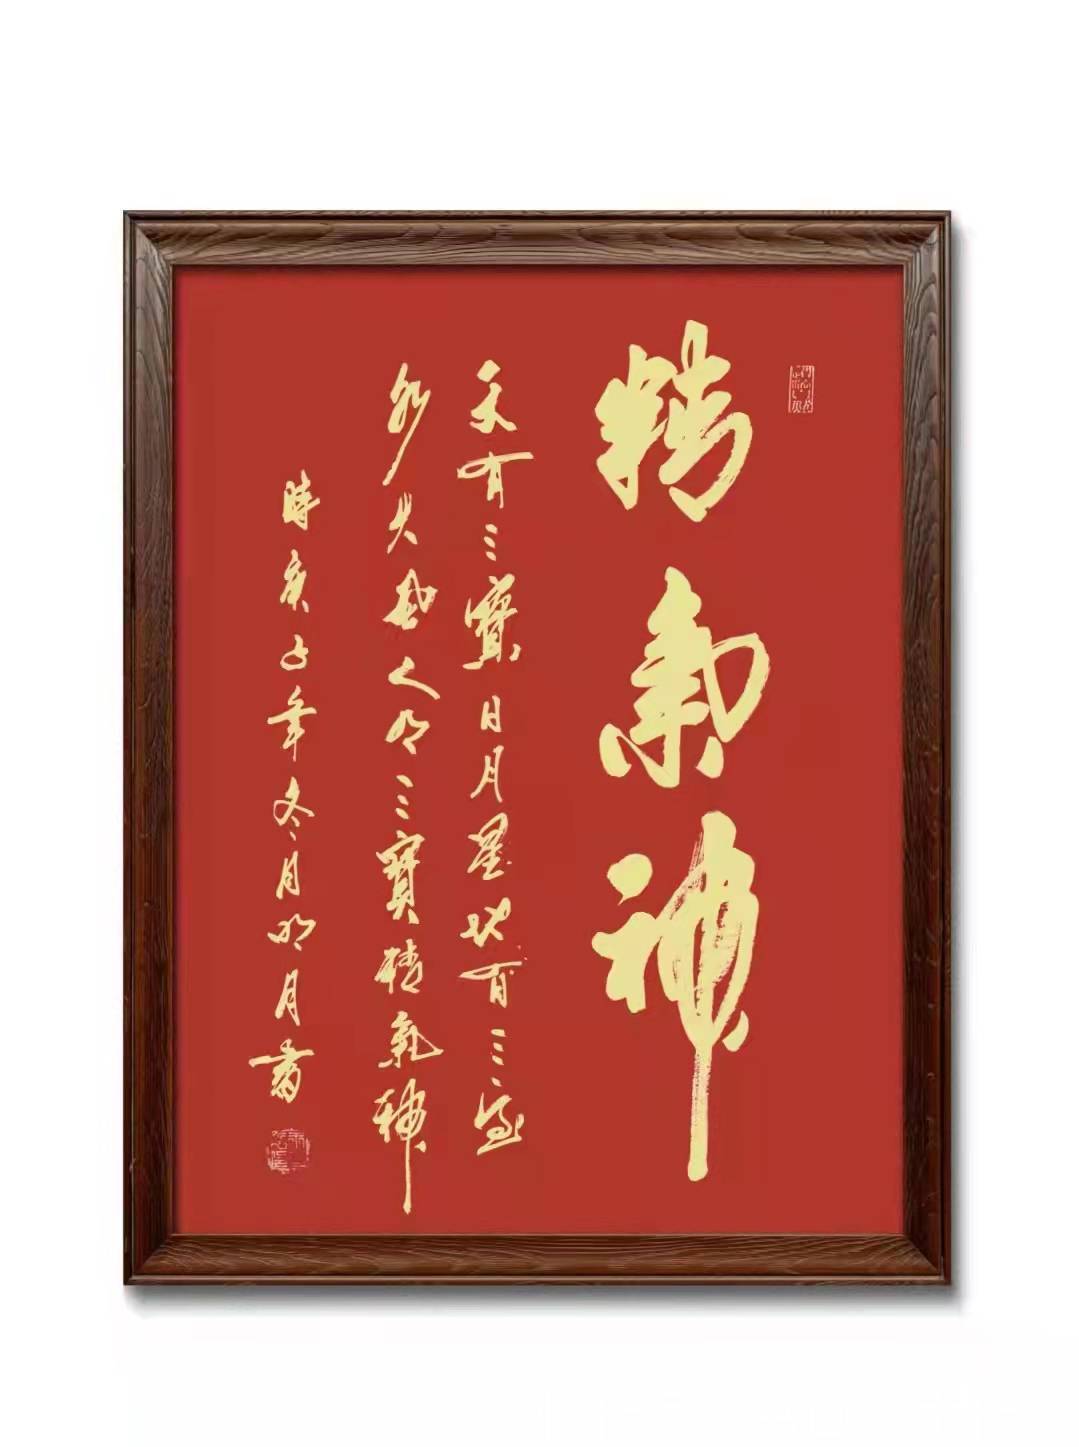 精氣神
天有三寶日月星地有三宝
水火風人有三寶精氣神
時庚子年冬月明月書